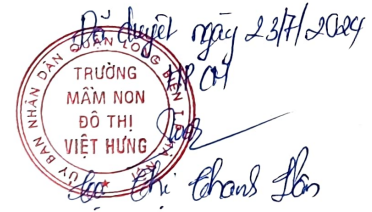 Đã duyệt ngày 23/7/2024
ỦY BAN NHÂN DÂN QUẬN LONG BIÊN
TRƯỜNG
MẦM NON
ĐÔ THỊ
VIỆT HƯNG
Thị Thanh